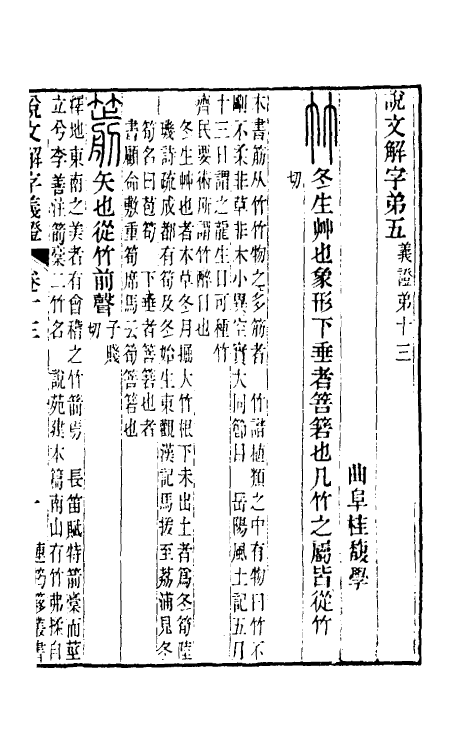 說文解字弟五
義證弟十三
曲阜桂馥學
竹
冬生艸也象形下垂者箁箬也凡竹之屬皆從竹
切
本書筋从竹竹物之多筋者 竹譜植類之中有物曰竹不
剛不柔非草非木小異空實大同節目 岳陽風土記五月
十三日謂之龍生日可種竹
齊民要術所謂竹醉日也
冬生艸也者本草冬月掘大竹根下未出土者爲冬筍陸
璣詩疏成都有筍及冬始生東觀漢記馬援至荔浦見冬
筍名曰苞筍 下垂者箁箬也者
書顧命敷重筍席馬云筍箁箬也
箭
矢也從竹前聲
子賤
切
釋地東南之美者有會稽之竹箭焉 長笛賦特箭槀而莖
立兮李善注箭槀二竹名 說苑建本篇南山有竹弗揉自
說文解字義證
卷十三
一
連筠簃叢書